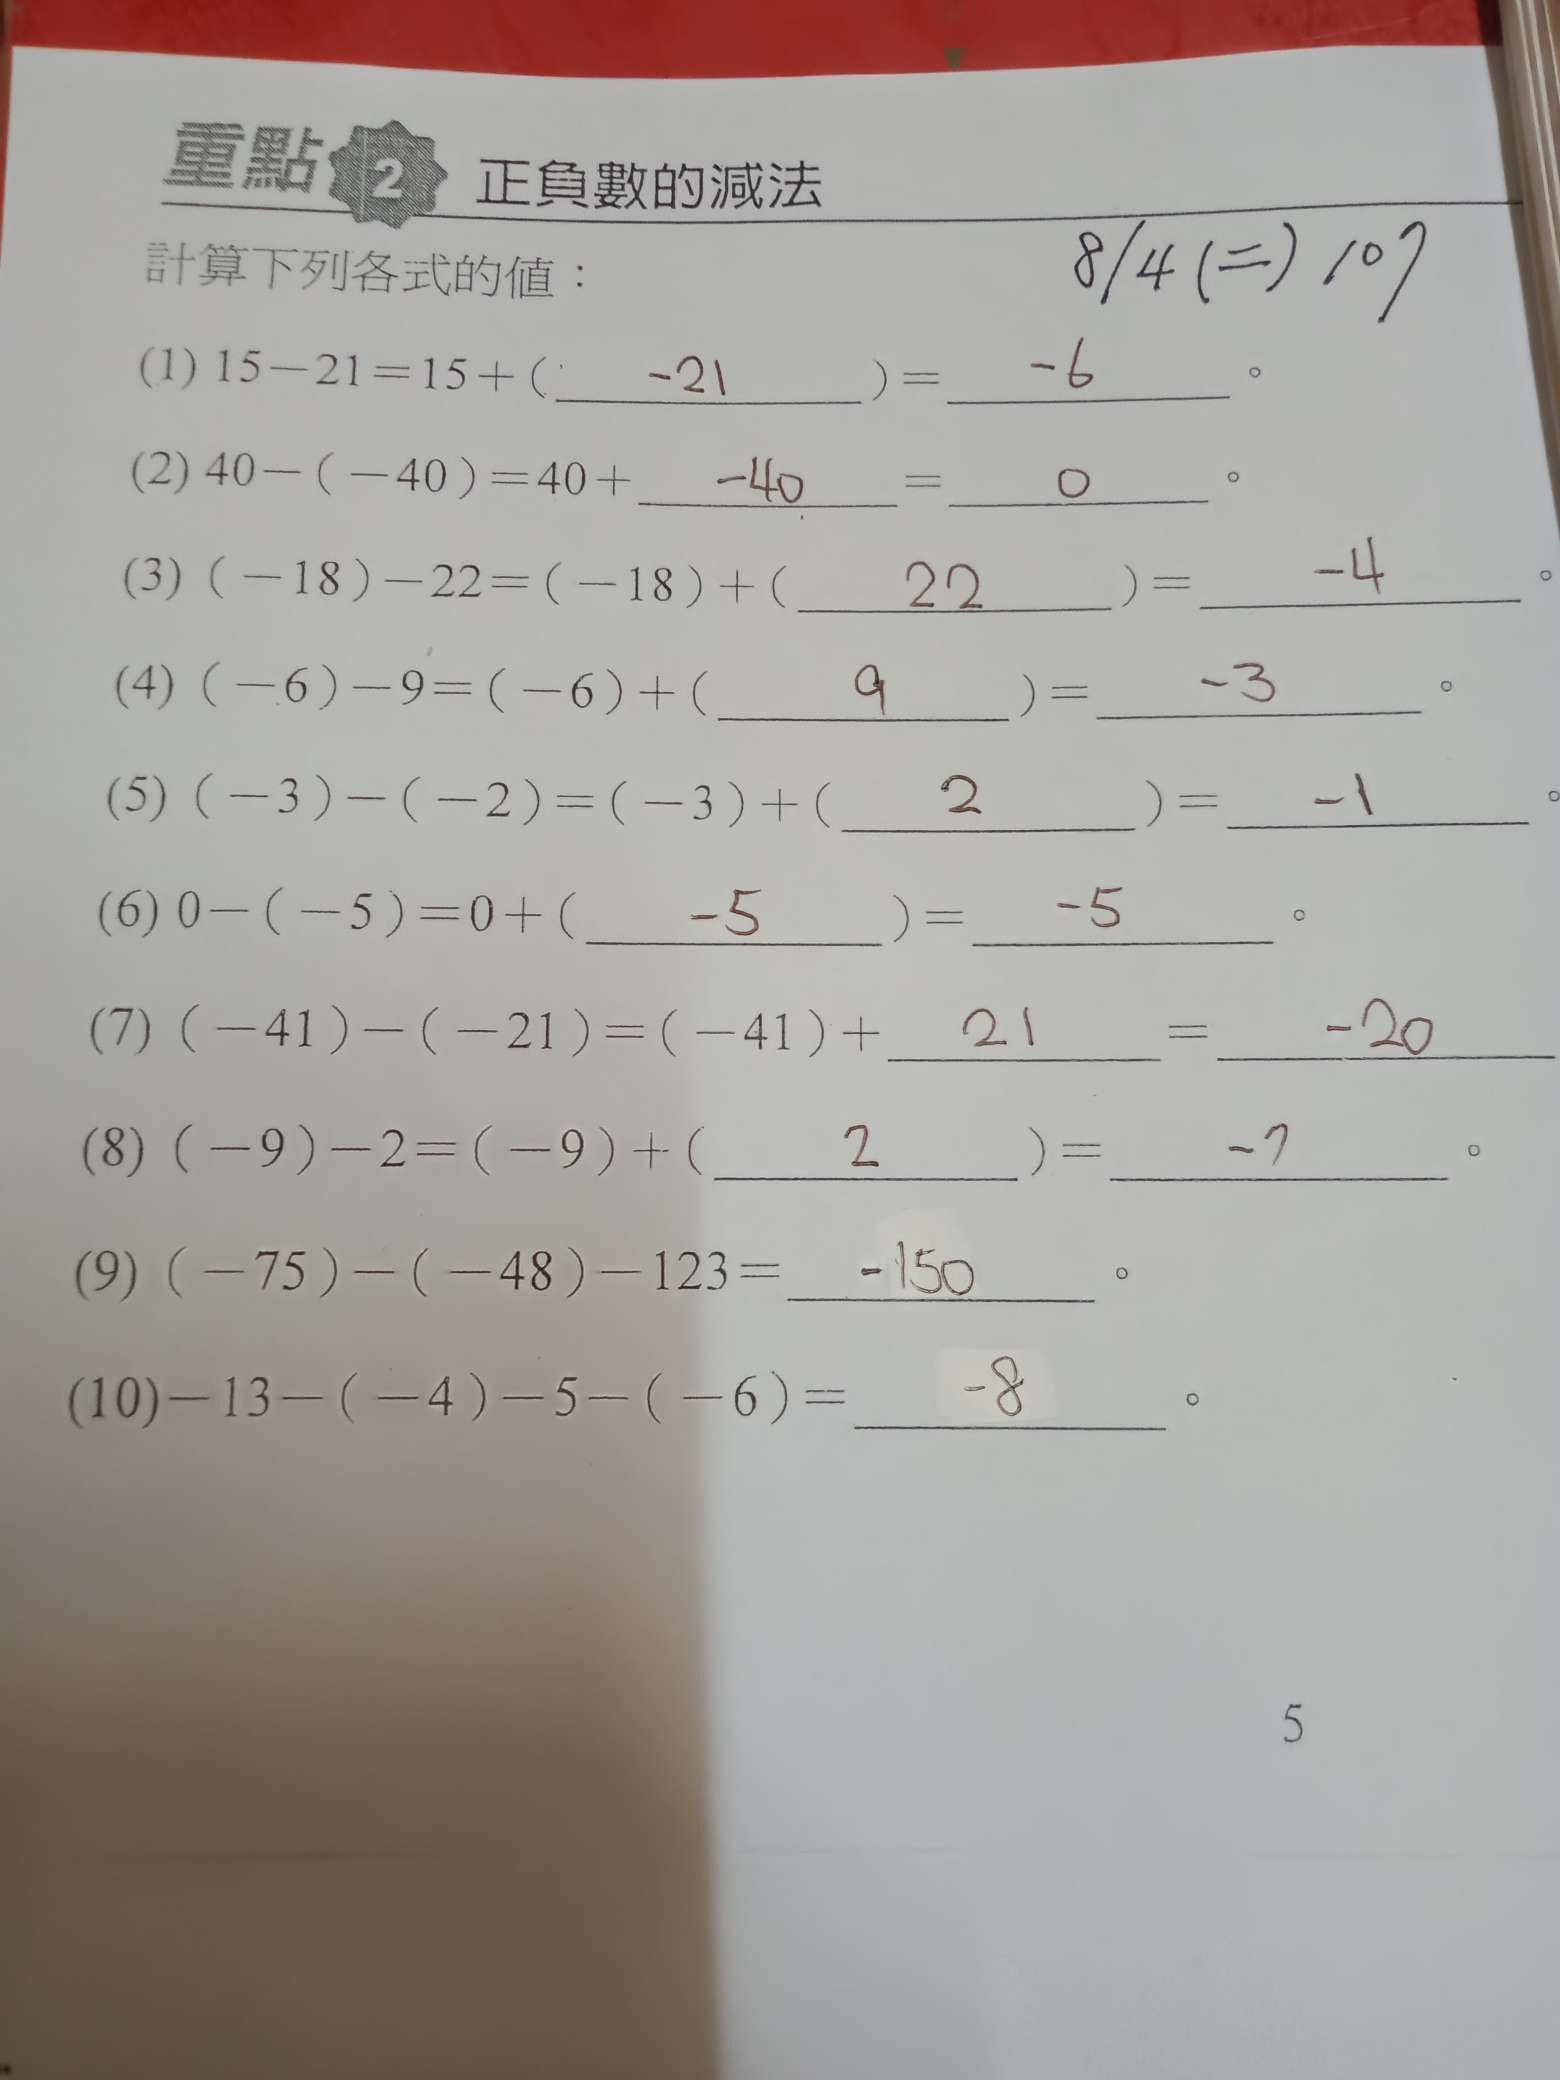 重點 2 正負數的減法
計算下列各式的值： 8/4 (二) 107
(1) 15－21＝15＋( -21 )＝ -6 。
(2) 40－(－40)＝40＋ -40 ＝ 0 。
(3) (－18)－22＝(－18)＋( 22 )＝ -4 。
(4) (－6)－9＝(－6)＋( 9 )＝ -3 。
(5) (－3)－(－2)＝(－3)＋( 2 )＝ -1 。
(6) 0－(－5)＝0＋( -5 )＝ -5 。
(7) (－41)－(－21)＝(－41)＋ 21 ＝ -20
(8) (－9)－2＝(－9)＋( 2 )＝ -7 。
(9) (－75)－(－48)－123＝ -150 。
(10)－13－(－4)－5－(－6)＝ -8 。
5